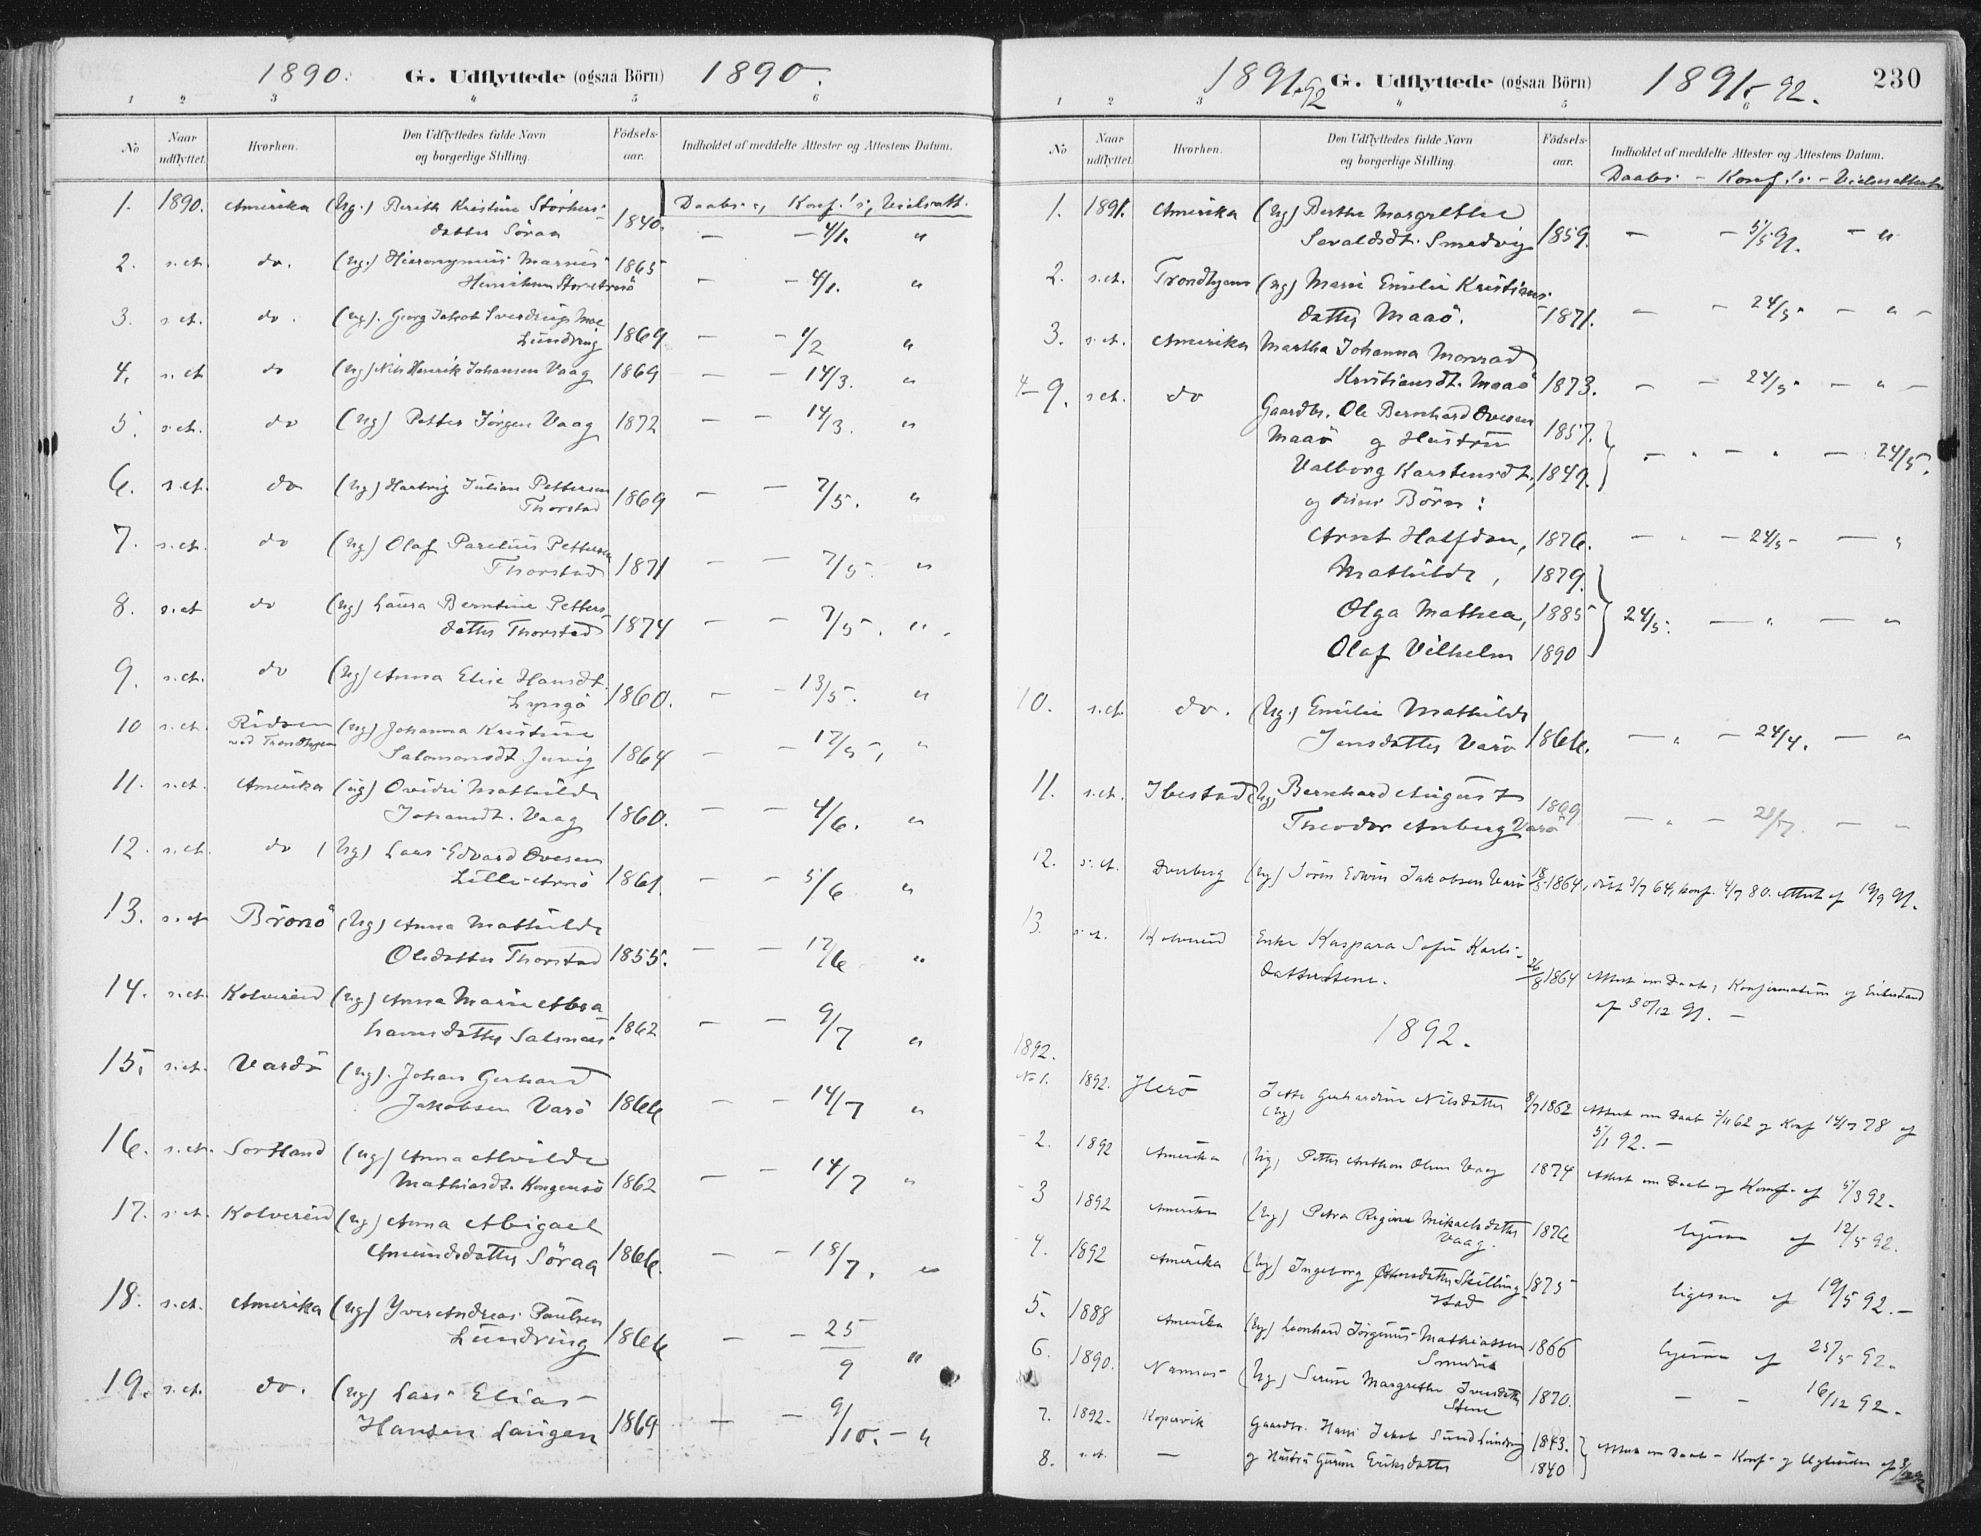 1890. G. Udflyttede (ogsaa Börn) 1890.
1 2 3 4 5 6
No Naar udflyttet. Hvorhen. Den Udflyttedes fulde Navn og borgerlige Stilling. Födsels-aar. Indholdet af meddelte Attester og Attestens Datum.
1. 1890. Amerika (Ug.) Berith Kristine Storkers- Daabs- Konf. Vielsatt.
datter Söraa 1840. — — 4/1. "
2. s.et. do. (ug.) Hieronymus Marius 1865
Henriksen Stor-Arnö — — 4/1. "
3. s.et. do. (ug). Georg Jakob Sverdrup Moe
Lundring 1869. — — 1/2 "
4. s.et do (ug) Nils Henrik Johansen Vaag 1869 — — 14/3. "
5. s.et. do (Ug) Petter Jörgen Vaag 1872 — — 14/3. "
6. s.et. do (ug) Hartvig Julian Pettersen
Thorstad 1869 — — 7/5. "
7. s.et. do (ug) Olaf Parelius Pettersen
Thorstad 1871 — — 7/5. "
8. s.et do (ug) Laura Berntine Petters-
datter Thorstad 1874 — — 7/5. "
9. s.et. do (ug) Anna Elise Hansdt.
1860. — — 13/5. "
10 s.et. ved Trondhjem (ug) Johanna Kristine
Salomonsdt. 1864 — — 17/5, "
11. s.et. Amerika (ug) Ovidie Mathilde
Johansdt. Vaag 1860. — — 4/6. "
12. s.et. do (ug) Lars Edvard Ovesen
Lille-Arnö 1861. — — 5/6 "
13. s.et Brönö (Ug) Anna Mathilde
Olsdatter Thorstad 1855. — — 17/6 "
14. s.et. Kolvereid (ug) Anna Marie Abra
hamsdatter Salsnæs. 1862 — — 9/7 "
15. s.et. Vardö (ug). Johan Gerhard
Jakobsen Varö 1866 — — 14/7 "
16. s.et. Sortland (ug) Anna Alvilde
Mathiasdt. Kongensö 1862 — — 14/7 "
17. s.et. Kolvereid (ug) Anna Abigael
Amundsdatter Söraa 1866. — — 18/7. "
18. s.et. Amerika (ug) Yver Andreas Paulsen
Lundring 1866 — — 25/9 "
19. s.et. do. (ug) Lars Elias
Hansen Langen 1869 — — 9/10. — "
1891-92 G. Udflyttede (ogsaa Börn) 1891-92. 230
1 2 3 4 5 6
No Naar udflyttet. Hvorhen. Den Udflyttedes fulde Navn og borgerlige Stilling. Födsels-aar. Indholdet af meddelte Attester og Attestens Datum.
Daabs- — Konf.'s — Vielsesattester
1. 1891. Amerika (ug) Berthe Margrethe
Sevaldsdt. Smedvig 1859. — — 5/5 91. — "
2. s.et. Trondhjem (ug) Marie Emelie Kristians-
datter Maaö. 1871. — — 24/5 — " —
3. s.et. Amerika Martha Johanna Monrad
Kristiansdt. Maaö 1873. — — 24/5 — " —
4-9. s.et. do Gaardbr. Ole Bernhard Ovesen
Maaö og Hustru 1857.
Valborg Karstensdt, 1849. — " — " — 24/5.
og Börn:
Arnt Halfdan, 1876. — " — 24/5 — "
Mathilde, 1879.
Olga Mathea, 1885 24/5. — " — "
Olaf Vilhelm 1890
10. s.et. do. (ug.) Emilie Mathilde
Jensdatter Varö 1866. — " — 24/4. — "
11. s.et. Ibestad (ug) Bernhard August
Theodor Varö 1869 — " — — "
12. s.et. (ug) Sören Edvin Jakobsen Varö 1864, döbt 3/7 64, konf. 4/7 80. Attest af 19/9 91.
13. s.et. Kolvereid Enke Kaspara Sofie Karls-
datter Stene. 1864 Attest om Daab, Konfirmation og Enkestand
af 30/12 91. —
1892.
1892.
No 1. 1892. Herö Jette Gerhardine Nilsdatter 8/7 1862 Attest om Daab 62 og Konf 78 af
(ug) 5/1 92. —
2. 1892 Amerika (ug) Petter Anthon Olsen Vaag 1874 Attest om Daab og Konf. af 5/3 92.
3 1892 Amerika (ug) Petra Regine Mikaelsdatter
Vaag. 1876 ligesaa af 12/5 92.
4. 1892 Amerika (ug) Ingeborg Skilling-
stad 1875 ligesaa af 19/5 92. —
5. 1888 Amerika (ug) Leonhard Jörginus Mathiassen 1866 ligesaa af 23/5 92.
6. 1890. Namsos (ug) Serine Margrethe Iversdatter
Stene 1870. — — 16/12 92.
7. 1892. Kopervik Gaardbr. Hans Jakob Lundring 1843.
8. s.et. — og Hustru Gurine Eriksdatter 1840 Attest om Daab — Konf- og af